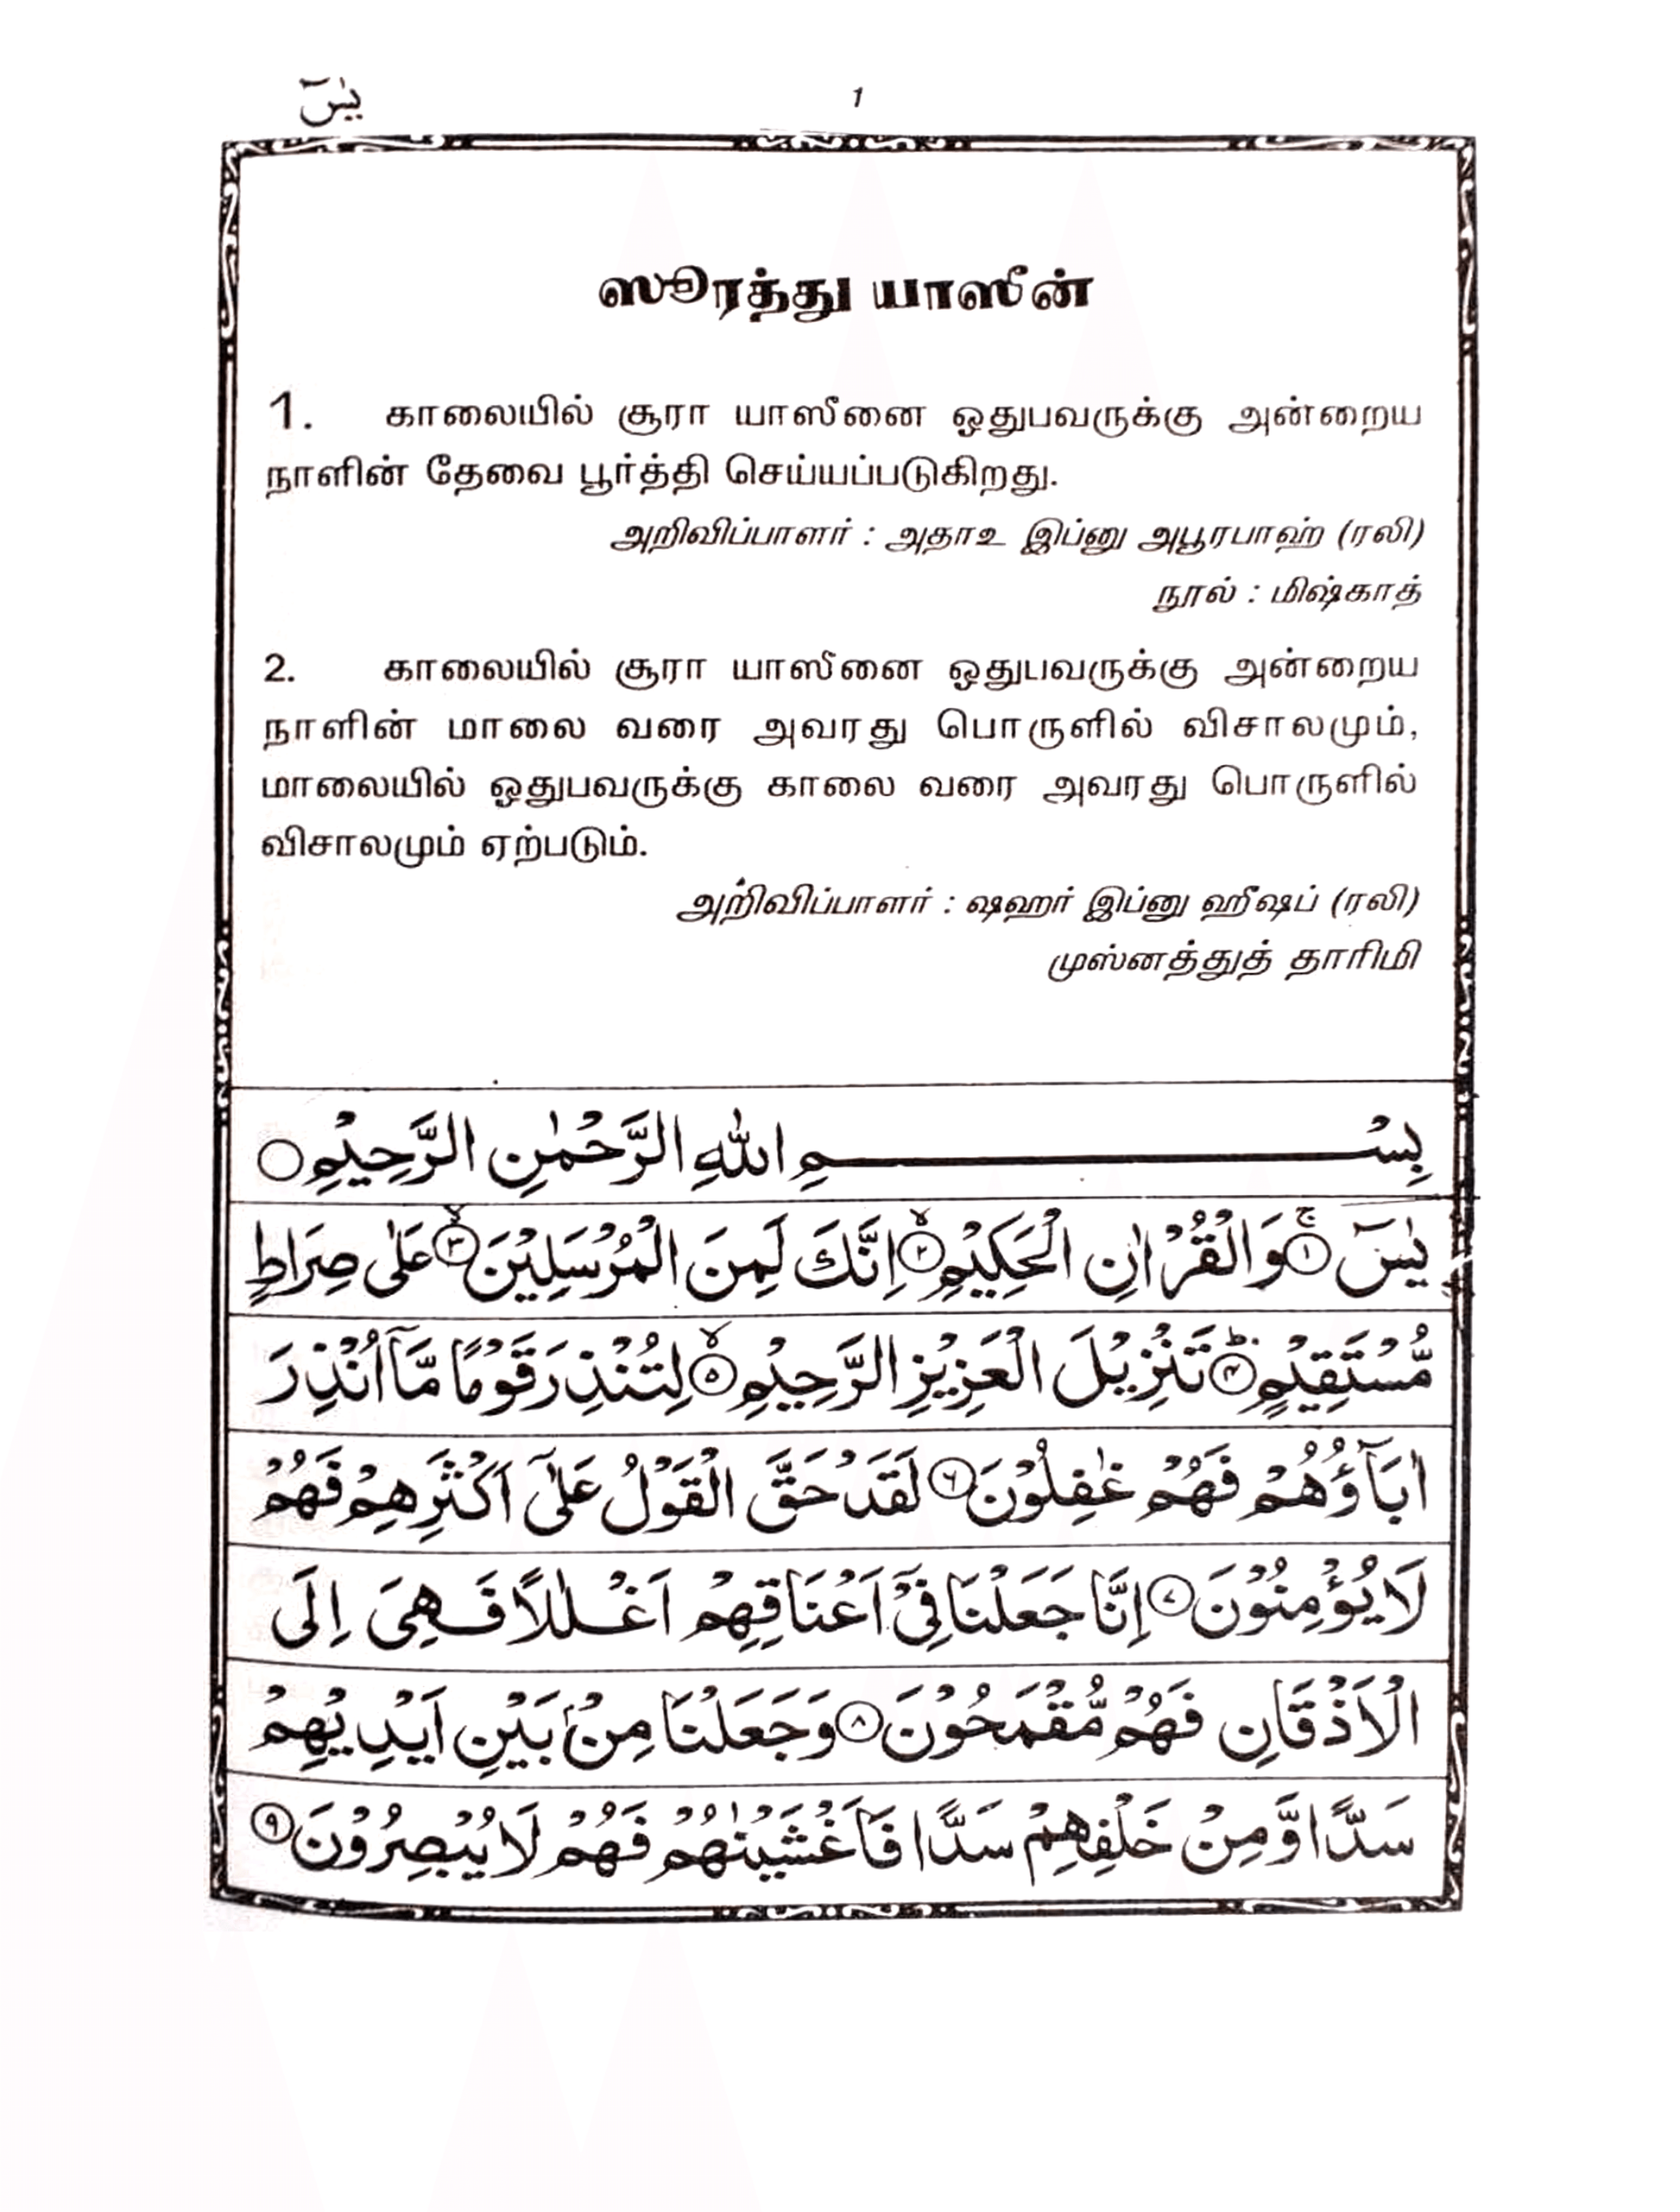 يٰسٓ
1
ஸூரத்து யாஸீன்
1. காலையில் சூரா யாஸீனை ஓதுபவருக்கு அன்றைய
நாளின் தேவை பூர்த்தி செய்யப்படுகிறது.
அறிவிப்பாளர் : அதாஉ இப்னு அபூரபாஹ் (ரலி)
நூல் : மிஷ்காத்
2. காலையில் சூரா யாஸீனை ஓதுபவருக்கு அன்றைய
நாளின் மாலை வரை அவரது பொருளில் விசாலமும்,
மாலையில் ஓதுபவருக்கு காலை வரை அவரது பொருளில்
விசாலமும் ஏற்படும்.
அறிவிப்பாளர் : ஷஹர் இப்னு ஹீஷப் (ரலி)
முஸ்னத்துத் தாரிமி
بِسْمِ اللهِ الرَّحْمٰنِ الرَّحِيْمِ
يٰسٓ ۚ﴿١﴾ وَالْقُرْاٰنِ الْحَكِيْمِ ۙ﴿٢﴾ اِنَّكَ لَمِنَ الْمُرْسَلِيْنَ ۙ﴿٣﴾ عَلٰى صِرَاطٍ
مُّسْتَقِيْمٍ ؕ﴿٤﴾ تَنْزِيْلَ الْعَزِيْزِ الرَّحِيْمِ ۙ﴿٥﴾ لِتُنْذِرَ قَوْمًا مَّاۤ اُنْذِرَ
اٰبَآؤُهُمْ فَهُمْ غٰفِلُوْنَ ﴿٦﴾ لَقَدْ حَقَّ الْقَوْلُ عَلٰۤى اَكْثَرِهِمْ فَهُمْ
لَا يُؤْمِنُوْنَ ﴿٧﴾ اِنَّا جَعَلْنَا فِيْۤ اَعْنَاقِهِمْ اَغْلٰلًا فَهِيَ اِلَى
الْاَذْقَانِ فَهُمْ مُّقْمَحُوْنَ ﴿٨﴾ وَجَعَلْنَا مِنْۢ بَيْنِ اَيْدِيْهِمْ
سَدًّا وَّمِنْ خَلْفِهِمْ سَدًّا فَاَغْشَيْنٰهُمْ فَهُمْ لَا يُبْصِرُوْنَ ﴿٩﴾